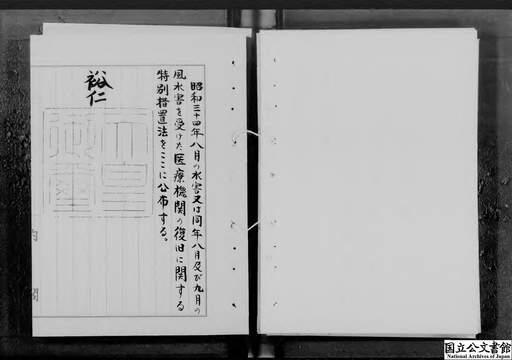 昭和三十四年八月の水害又は同年八月及び九月の
風水害を受けた医療機関の復旧に関する
特別措置法をここに公布する。
裕仁
天皇
御璽
内閣
国立公文書館
National Archives of Japan